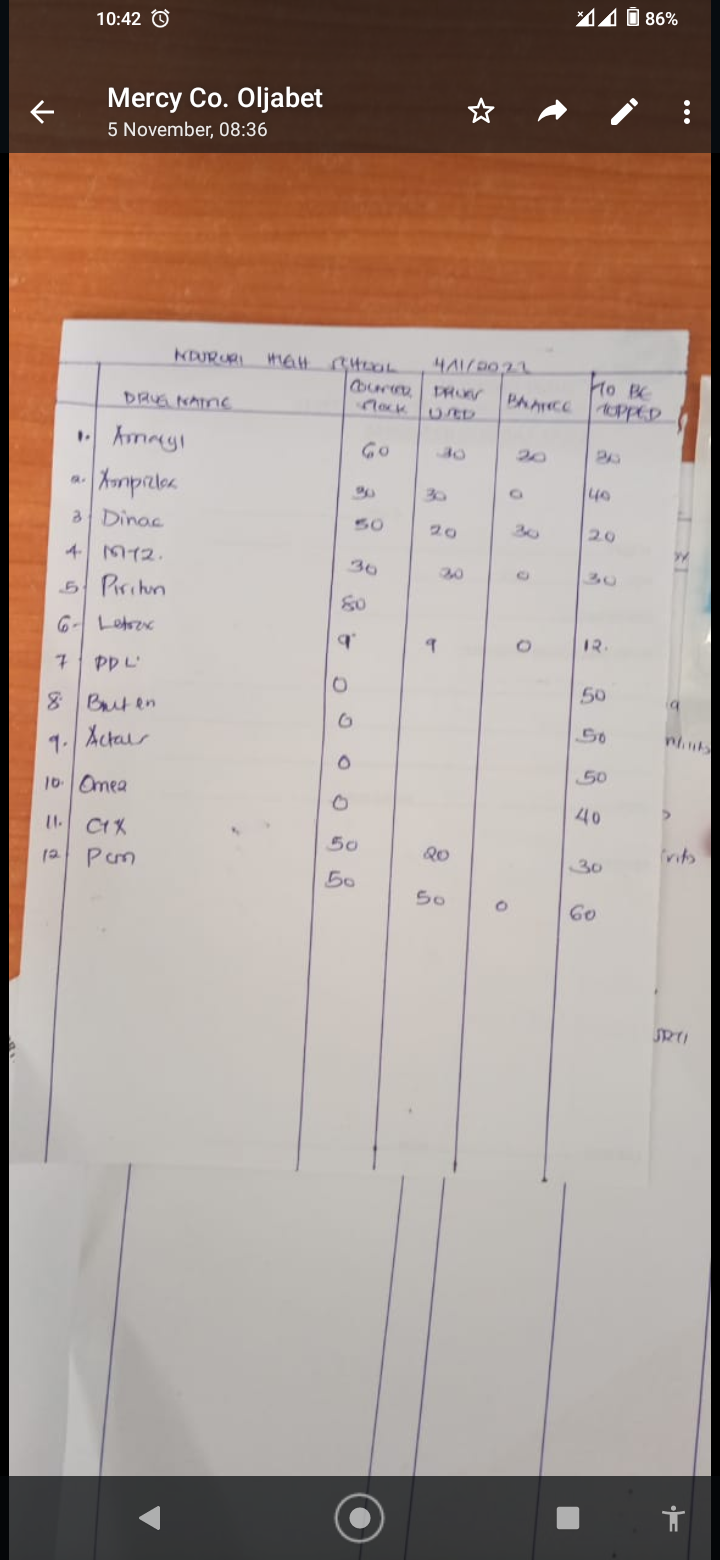 10:42 86%
Mercy Co. Oljabet
5 November, 08:36
NDURURI HIGH SCHOOL 4/11/2022
DRUG NAME COUNTED STOCK DRUGS USED BALANCE TO BE TOPPED
1. 60 30 20 30
2. 30 30 0 40
3 Dinac 50 20 30 20
4. MTZ. 30 30 0 30
5. Piriton 80
6. 9 9 0 12.
7 PDL 0 50
8. 0 50
9. 0 50
10. Omez 0 40
11. CTX 50 20 30
12 Pcm 50 50 0 60
SRTI